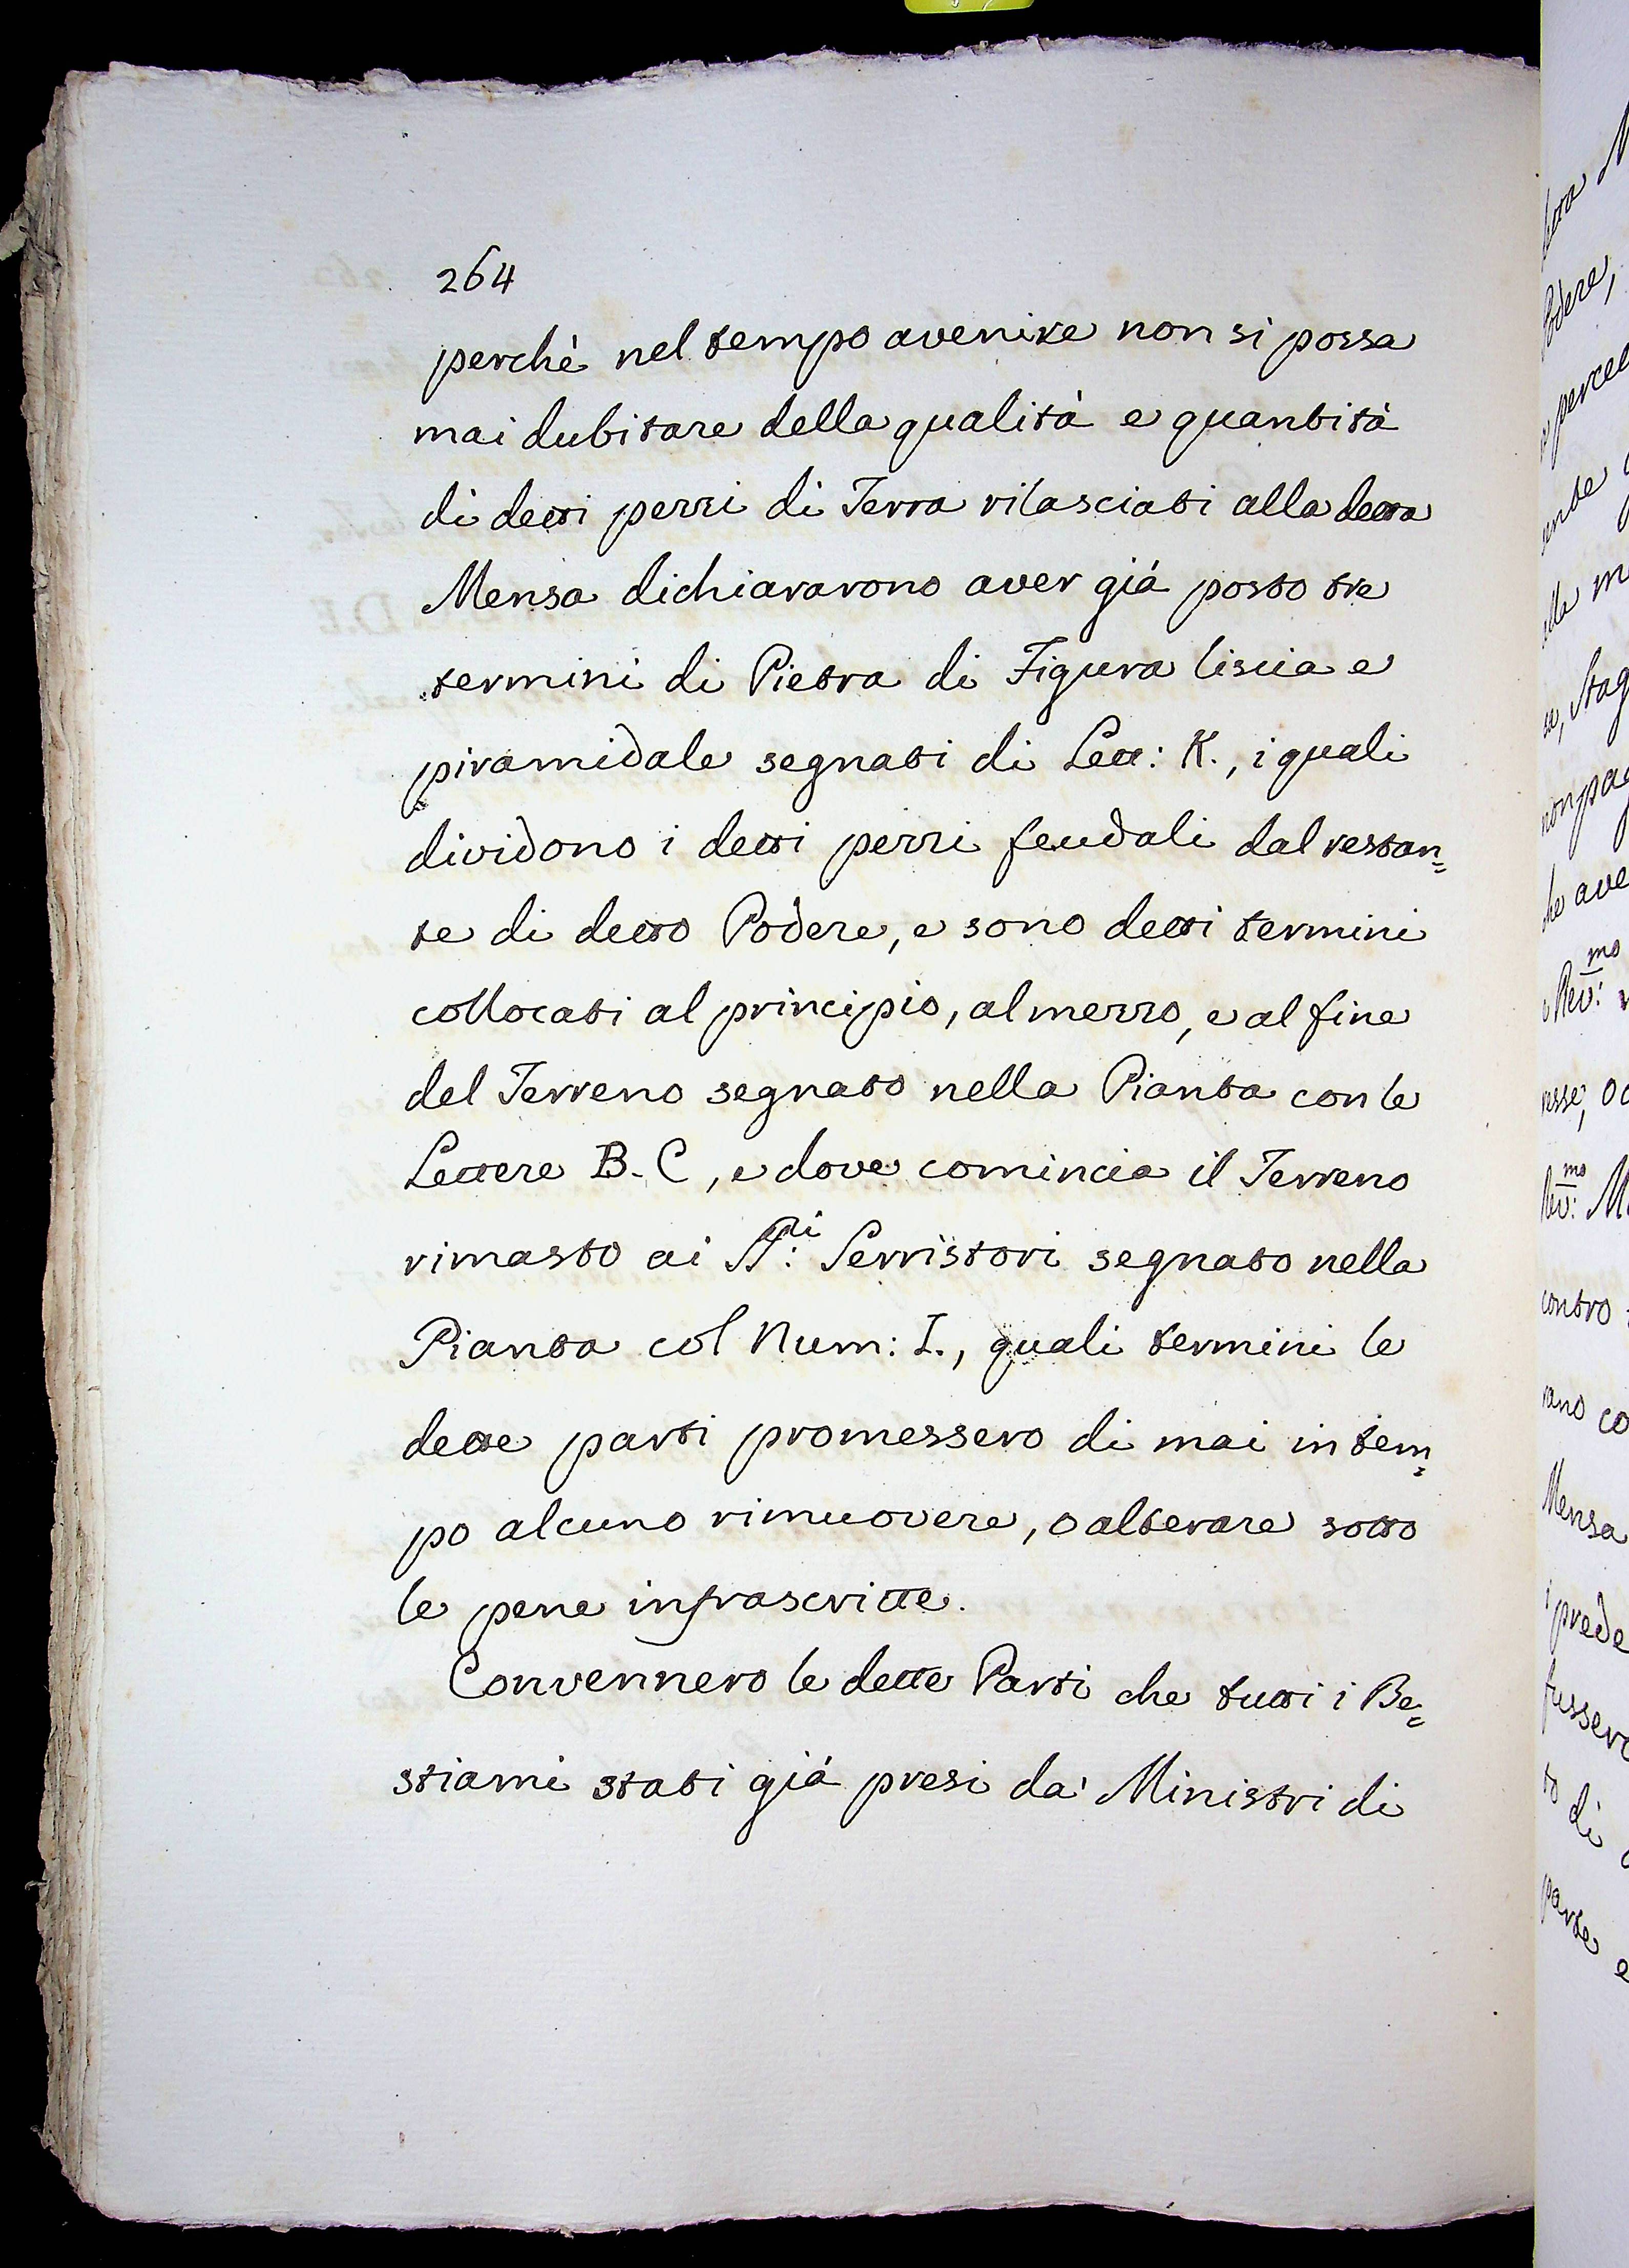 264
perchè nel tempo avenire non si possa
mai dubitare della qualità e quantità
di detti pezzi di Terra rilasciati alla detta
Mensa dichiararono aver già posto tre
termini di Pietra di Figura liscia e
piramidale segnati di Lett: K., i quali
dividono i detti pezzi feudali dal restan=
te di detto Podere, e sono detti termini
collocati al principio, al mezzo, e al fine
del Terreno segnato nella Pianta con le
Lettere B. C, e dove comincia il Terreno
rimasto ai SS:ri Serristori segnato nella
Pianta col Num: I., quali termini le
dette parti promessero di mai in tem=
po alcuno rimuovere, o alterare sotto
le pene infrascritte.
Convennero le dette Parti che tutti i Be=
stiami stati già presi da' Ministri di